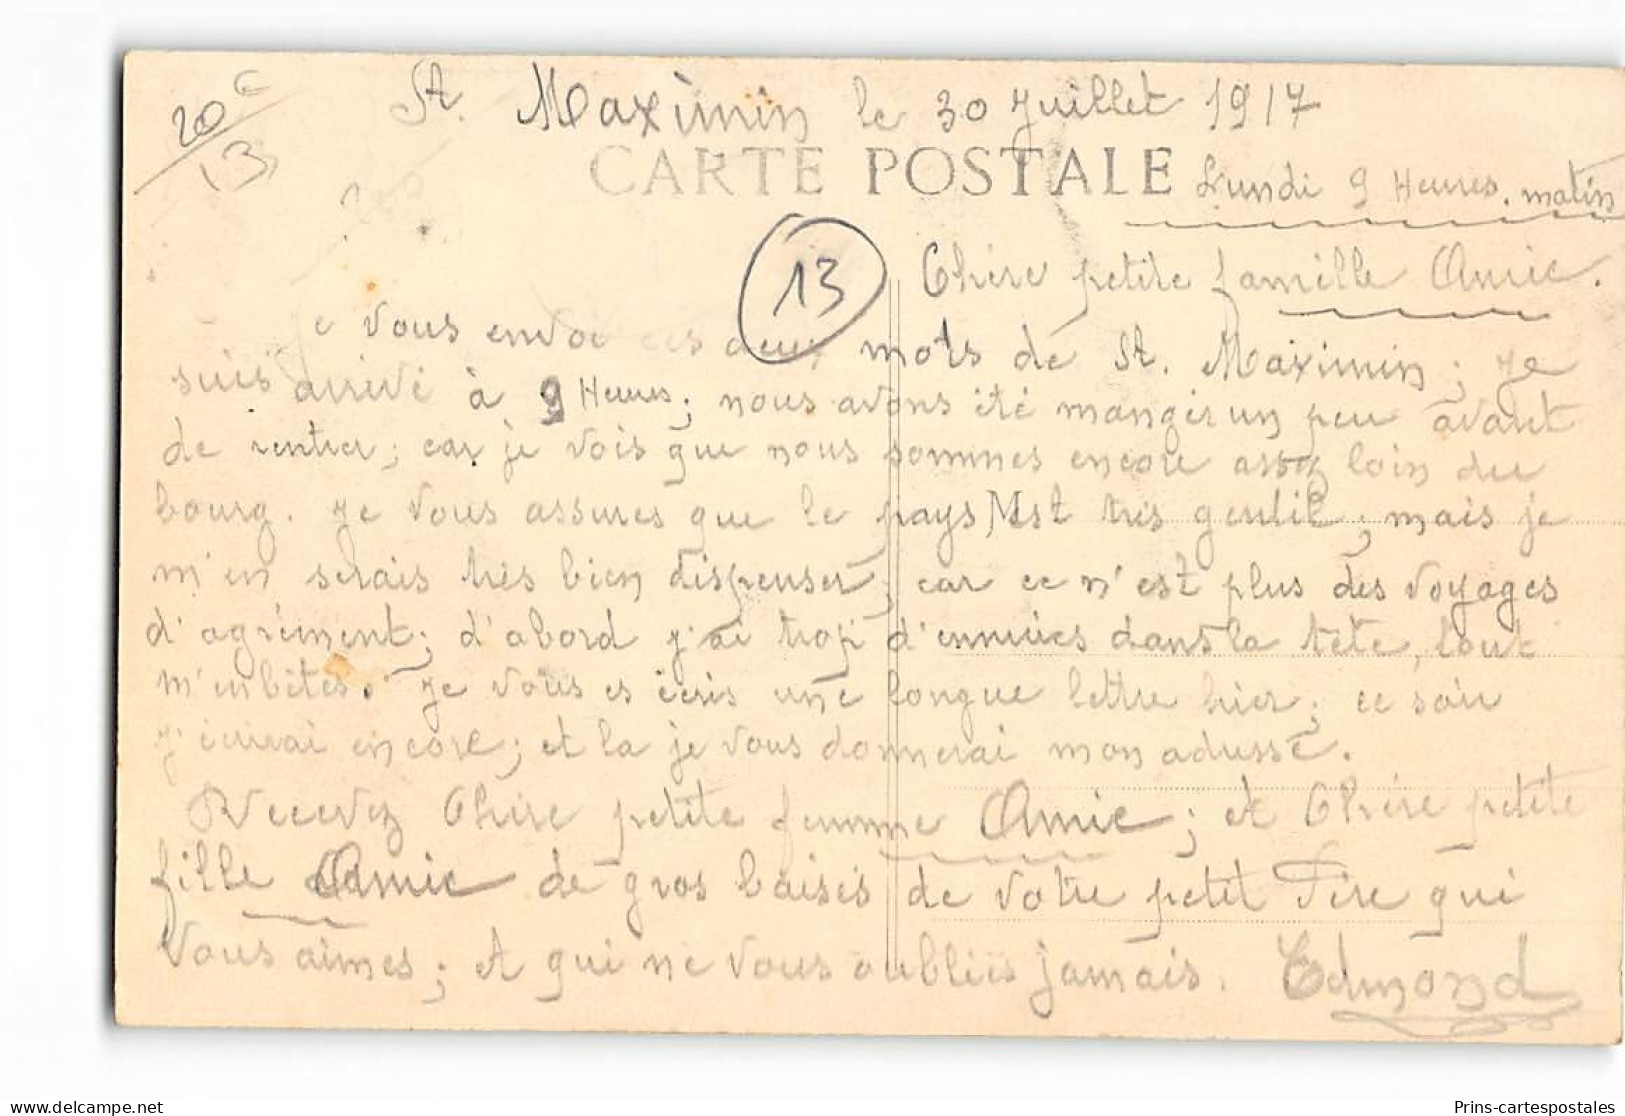 20c
13
St. Maximin le 30 Juillet 1917
CARTE POSTALE
Lundi 9 Heures. matin
13
Chère petite famille Amie.
e vous envoi ces deux mots de St. Maximin; Je
suis arrivé à 9 Heures; nous avons été manger un peu avant
de rentrer; car je vois que nous sommes encore assez loin du
bourg. Je vous assures que le pays est très gentil; mais je
m'en serais très bien dispenser; car ce n'est plus des voyages
d'agrément; d'abord j'ai trop d'ennuies dans la tête, tout
m'enbêtes. Je vous es écris une longue lettre hier; ce soir
j'écrirai encore; et la je vous donnerai mon adusse.
Recevez Chère petite femme Amie; et Chère petite
fille Amie de gros baisés de votre petit Père qui
vous aimes; et qui ne vous oublies jamais. Edmond
Prins-cartespostales
delcampe.net